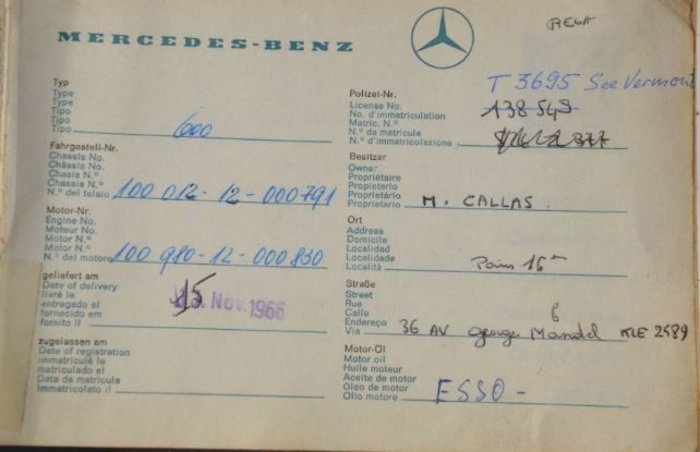 MERCEDES-BENZ
Typ
Type
Type
Tipo
Tipo
Tipo 600
Fahrgestell-Nr.
Chassis No.
Châssis No.
Chasis N.º
Chassis N.º
N.º del telaio 100 012-12-000791
Motor-Nr.
Engine No.
Moteur No.
Motor N.º
Motor N.º
N.º del motore 100 980-12-000830
geliefert am
Date of delivery
livré le
entregado el
fornecido em
fornito il 15 Nov. 1966
zugelassen am
Date of registration
immatriculé le
matriculado el
Data da matrícula
Immatricolato il
T 3695 See Vermont
Polizei-Nr.
License No.
No. d'immatriculation
Matric. N.º
N.º da matrícula
N.º d'immatricolazione
138549
Besitzer
Owner
Propriétaire
Propietario
Proprietário
Proprietario M. CALLAS.
Ort
Address
Domicile
Localidad
Localidade
Località Paris 16
Straße
Street
Rue
Calle
Endereço
Via 36 AV georges Mandel KLE 2589
Motor-Öl
Motor oil
Huile moteur
Aceite de motor
Óleo de motor
Olio motore ESSO -